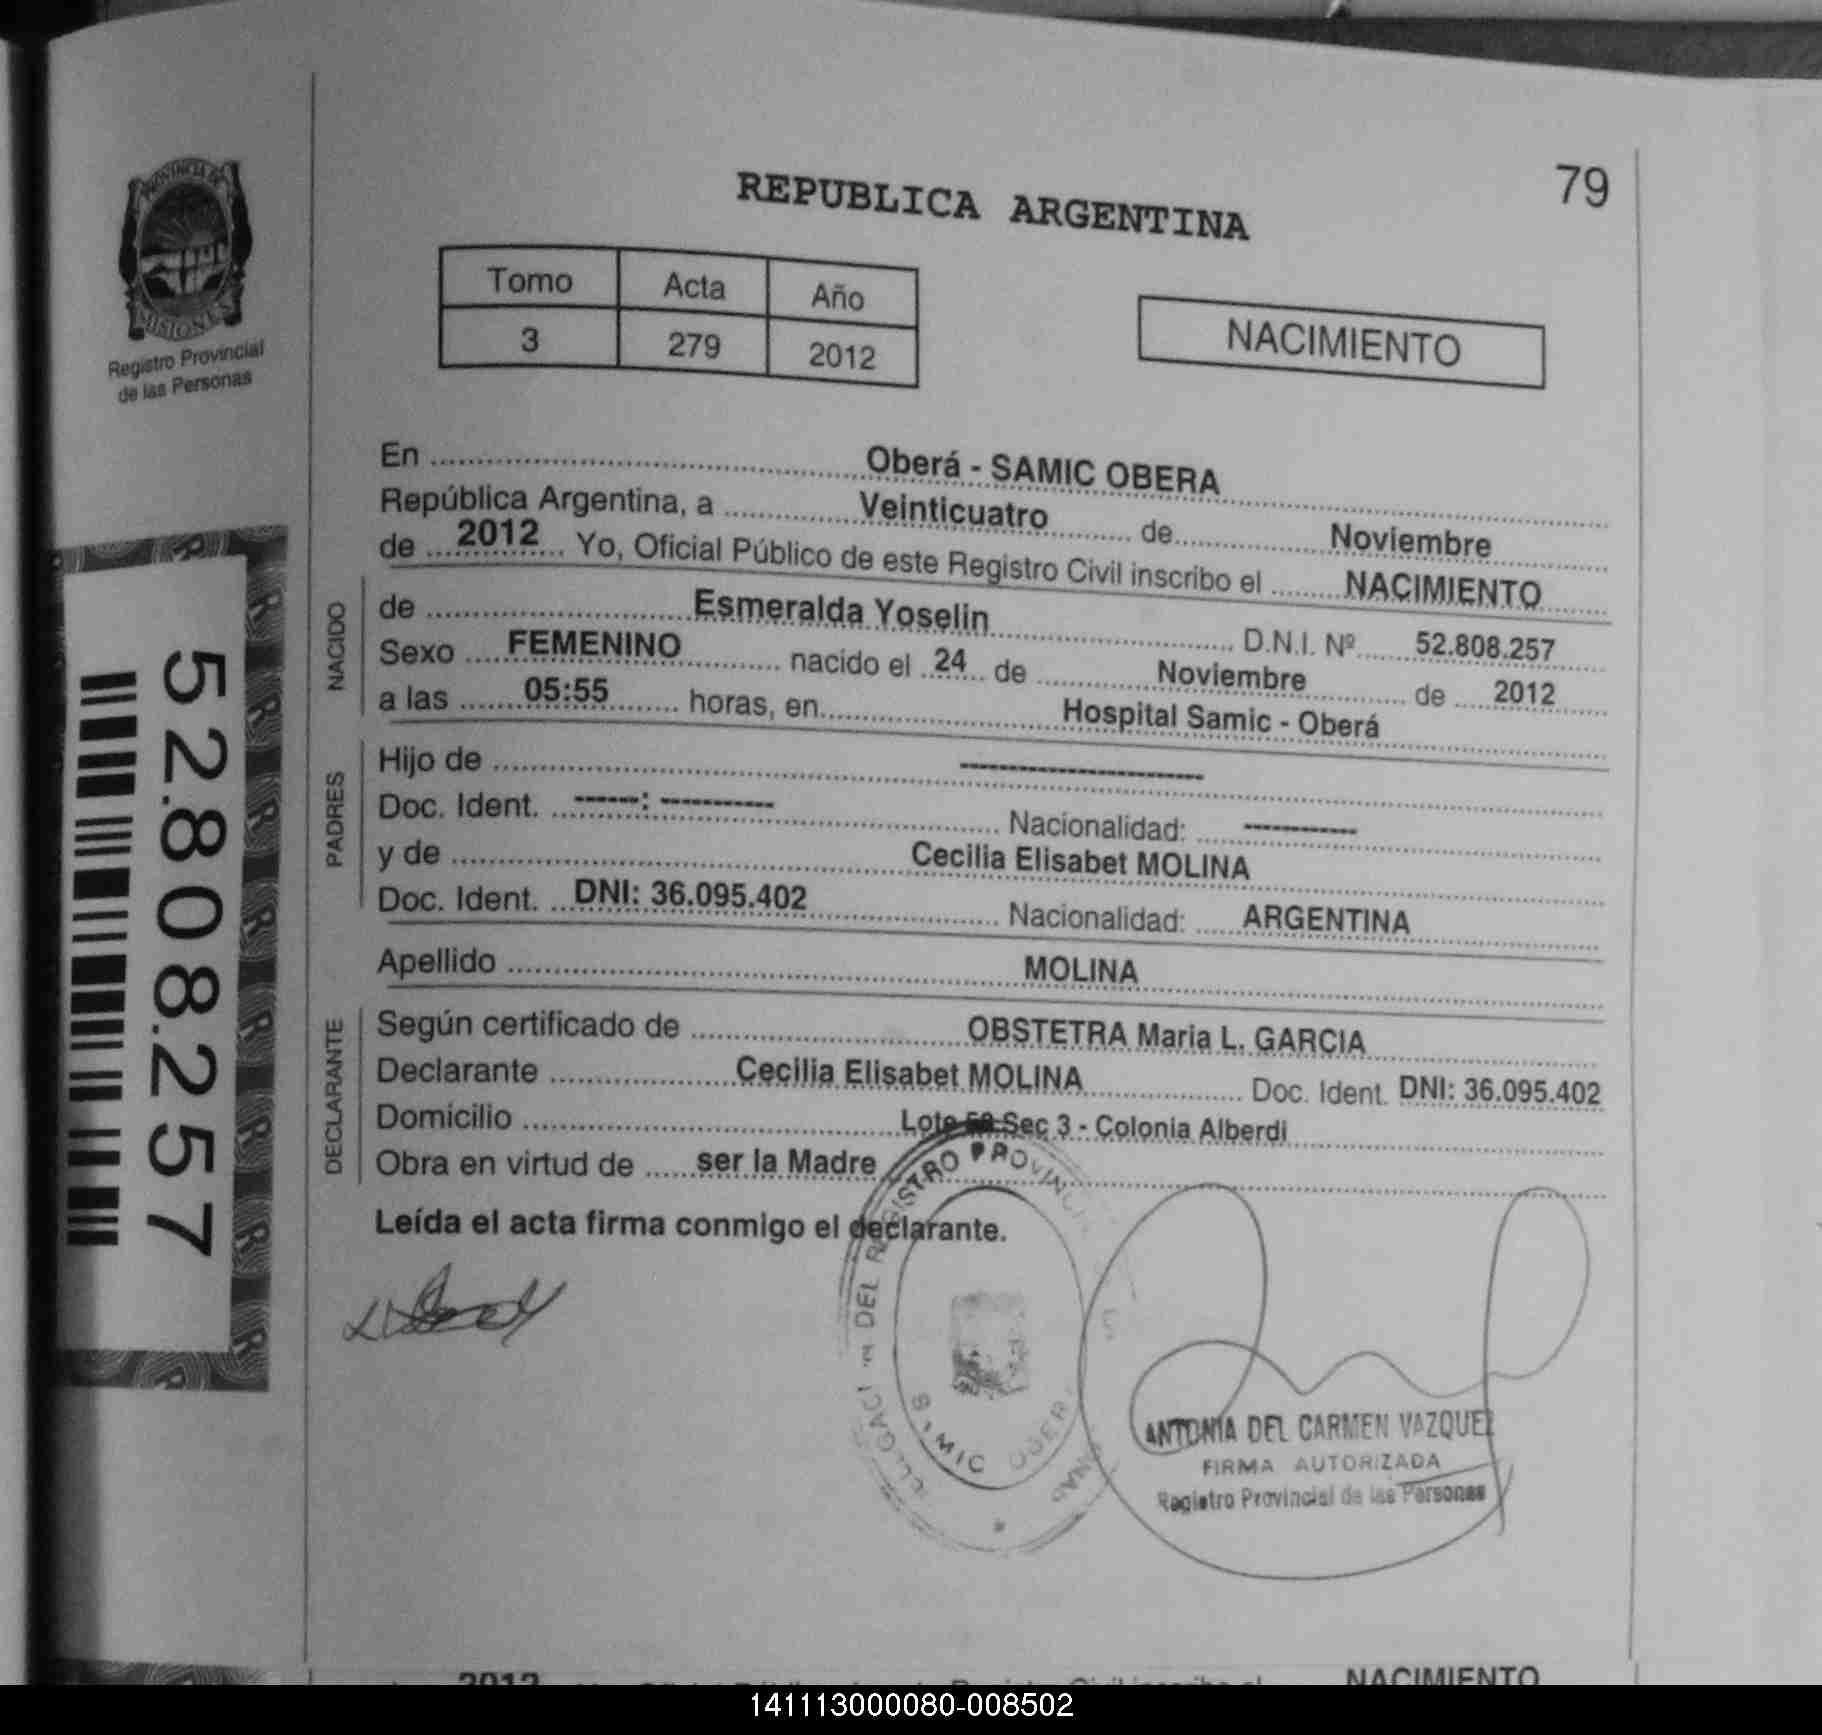 79
REPUBLICA ARGENTINA
PROVINCIA DE
MISIONES
Registro Provincial
de las Personas
Tomo Acta Año
3 279 2012
NACIMIENTO
En Oberá - SAMIC OBERA
República Argentina, a Veinticuatro de Noviembre
de 2012 Yo, Oficial Público de este Registro Civil inscribo el NACIMIENTO
NACIDO
de Esmeralda Yoselin D.N.I. Nº 52.808.257
Sexo FEMENINO nacido el 24 de Noviembre de 2012
a las 05:55 horas, en Hospital Samic - Oberá
PADRES
Hijo de ----------------------
Doc. Ident. ------: ---------- Nacionalidad: ----------
y de Cecilia Elisabet MOLINA
Doc. Ident. DNI: 36.095.402 Nacionalidad: ARGENTINA
Apellido MOLINA
DECLARANTE
Según certificado de OBSTETRA Maria L. GARCIA
Declarante Cecilia Elisabet MOLINA Doc. Ident. DNI: 36.095.402
Domicilio Lote Sec 3 - Colonia Alberdi
Obra en virtud de ser la Madre
Leída el acta firma conmigo el declarante.
52.808.257
DEL REGISTRO PROVINCI
ANTONIA DEL CARMEN VAZQUEZ
FIRMA AUTORIZADA
Registro Provincial de las Personas
2012 NACIMIENTO
141113000080-008502